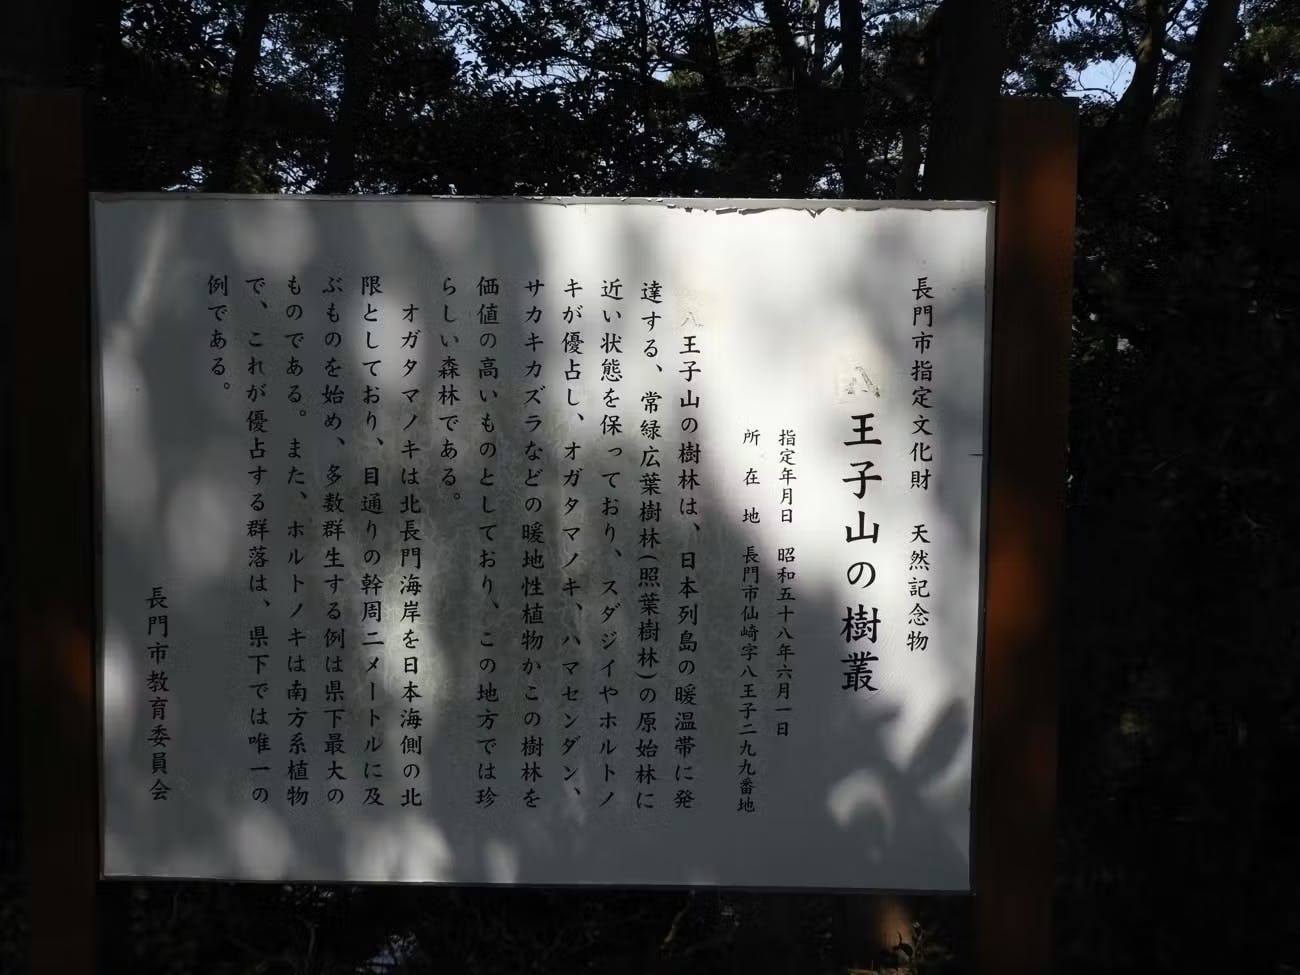 長門市指定文化財　天然記念物
八王子山の樹叢
指定年月日　昭和五十八年六月一日
所在地　長門市仙崎字八王子二九九番地
八王子山の樹林は、日本列島の暖温帯に発
達する、常緑広葉樹林(照葉樹林)の原始林に
近い状態を保っており、スダジイやホルトノ
キが優占し、オガタマノキ、ハマセンダン、
サカキカズラなどの暖地性植物がこの樹林を
価値の高いものとしており、この地方では珍
らしい森林である。
オガタマノキは北長門海岸を日本海側の北
限としており、目通りの幹周二メートルに及
ぶものを始め、多数群生する例は県下最大の
ものである。また、ホルトノキは南方系植物
で、これが優占する群落は、県下では唯一の
例である。
長門市教育委員会